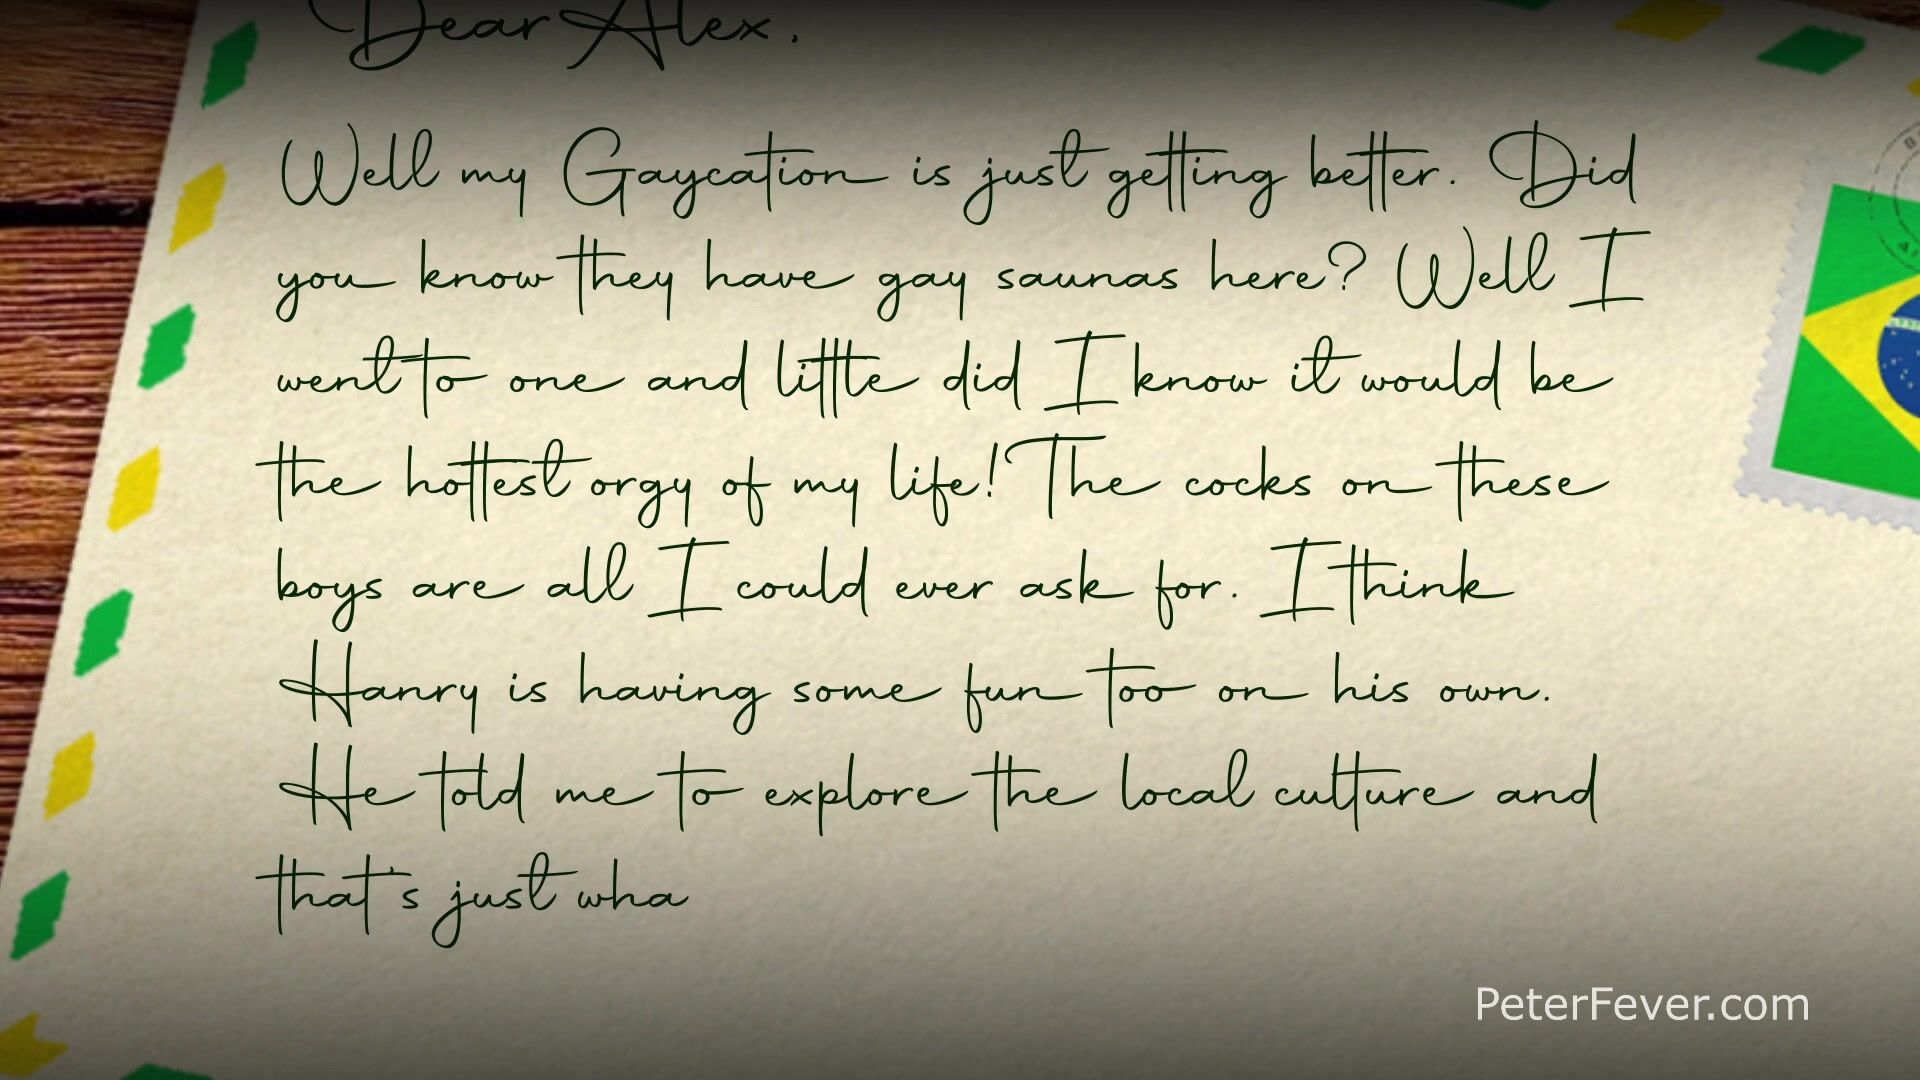 Dear Alex.
Well my Gaycation is just getting better. Did
you know they have gay saunas here? Well I
went to one and little did I know it would be
the hottest orgy of my life! The cocks on these
boys are all I could ever ask for. I think
Hanry is having some fun too on his own.
He told me to explore the local culture and
that's just wha
PeterFever.com